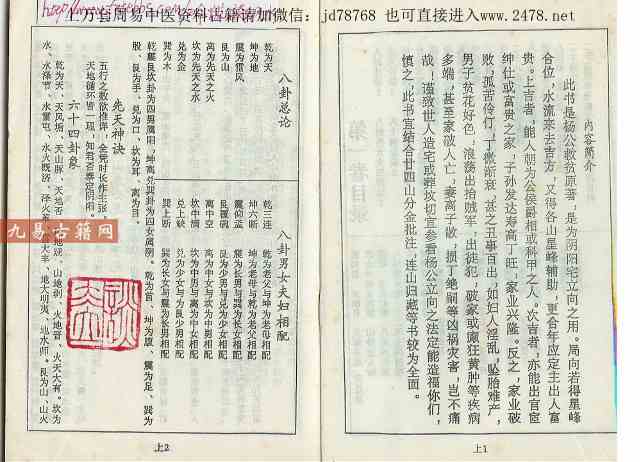 上万套周易中医资料古籍请加微信：jd78768 也可直接进入www.2478.net
内容简介
此书是杨公救贫原著，是为阴阳宅立向之用。局向若得星峰
合位，水流来去吉方，又得各山星峰辅助，更合年应定主出人富
贵。上吉者，能人朝为公侯爵相或科甲之人。次吉者，亦能出官宦
绅仕或富贵之家，子孙发达寿高丁旺，家业兴隆。反之，家业破
败，孤苦伶仃，丁嗷渐衰，甚之丑事百出，如妇人淫乱，坠胎难产，
男子贫花好色，浪荡出抬贼军，出徒犯，破家或癫狂黄肿等疾病
多端，甚至家破人亡，妻离子散，损丁绝嗣等凶祸灾害，岂不痛
哉！谨致世人造宅或葬坟切宜参看杨公立向之法定能造福你们，
慎之，此书宜结合廿四山分金批注，连山归藏等书较为全面。
上1
八卦总论
乾为天
坤为地
震为雷风
艮为山
离为先天之火
坎为先天之水
兑为金
巽为木
乾三连
坤六断
震仰盂
艮覆碗
离中空
坎中满
兑上缺
巽上断
八卦男女夫妇相配
乾为老父与坤为老母相配
坤为老母与乾为老父相配
震为长男与巽为长女相配
艮为少男与兑为少女相配
离为中女与坎为中男相配
坎为中男与离为中女相配
兑为少女与艮为少男相配
巽为长女与震为长男相配
乾震艮坎卦为四男属阳，坤离兑巽卦为四女属阴。乾为首，坤为腹，震为足，巽为
股，艮为手，兑为口，坎为耳，离为目。
先天神诀
五行之数欲推详，金凭时长作主张，
天地循环皆一理，知君否泰定阴阳。
六十四卦象
乾为天、天风姤、天山遁、天地否、风地观、山地剥、火地晋、火天大有。坎为
水、水泽节、水雷屯、水火既济、泽火革、雷火丰、地火明夷、地水师。艮为山、山火
上2
九易古籍网